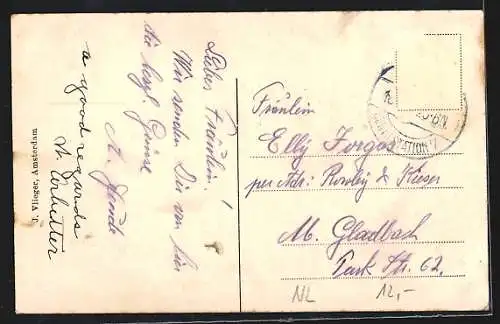 Liebes Fräulein!
Wir senden Sie von hier
die herzl. Grüsse
A.
a good regards
J. Vlieger, Amsterdam
Fräulein
Elly Forgas
per Adr: Rowley & Kieser
M. Gladbach
Park Str. 62.
NL
12,-